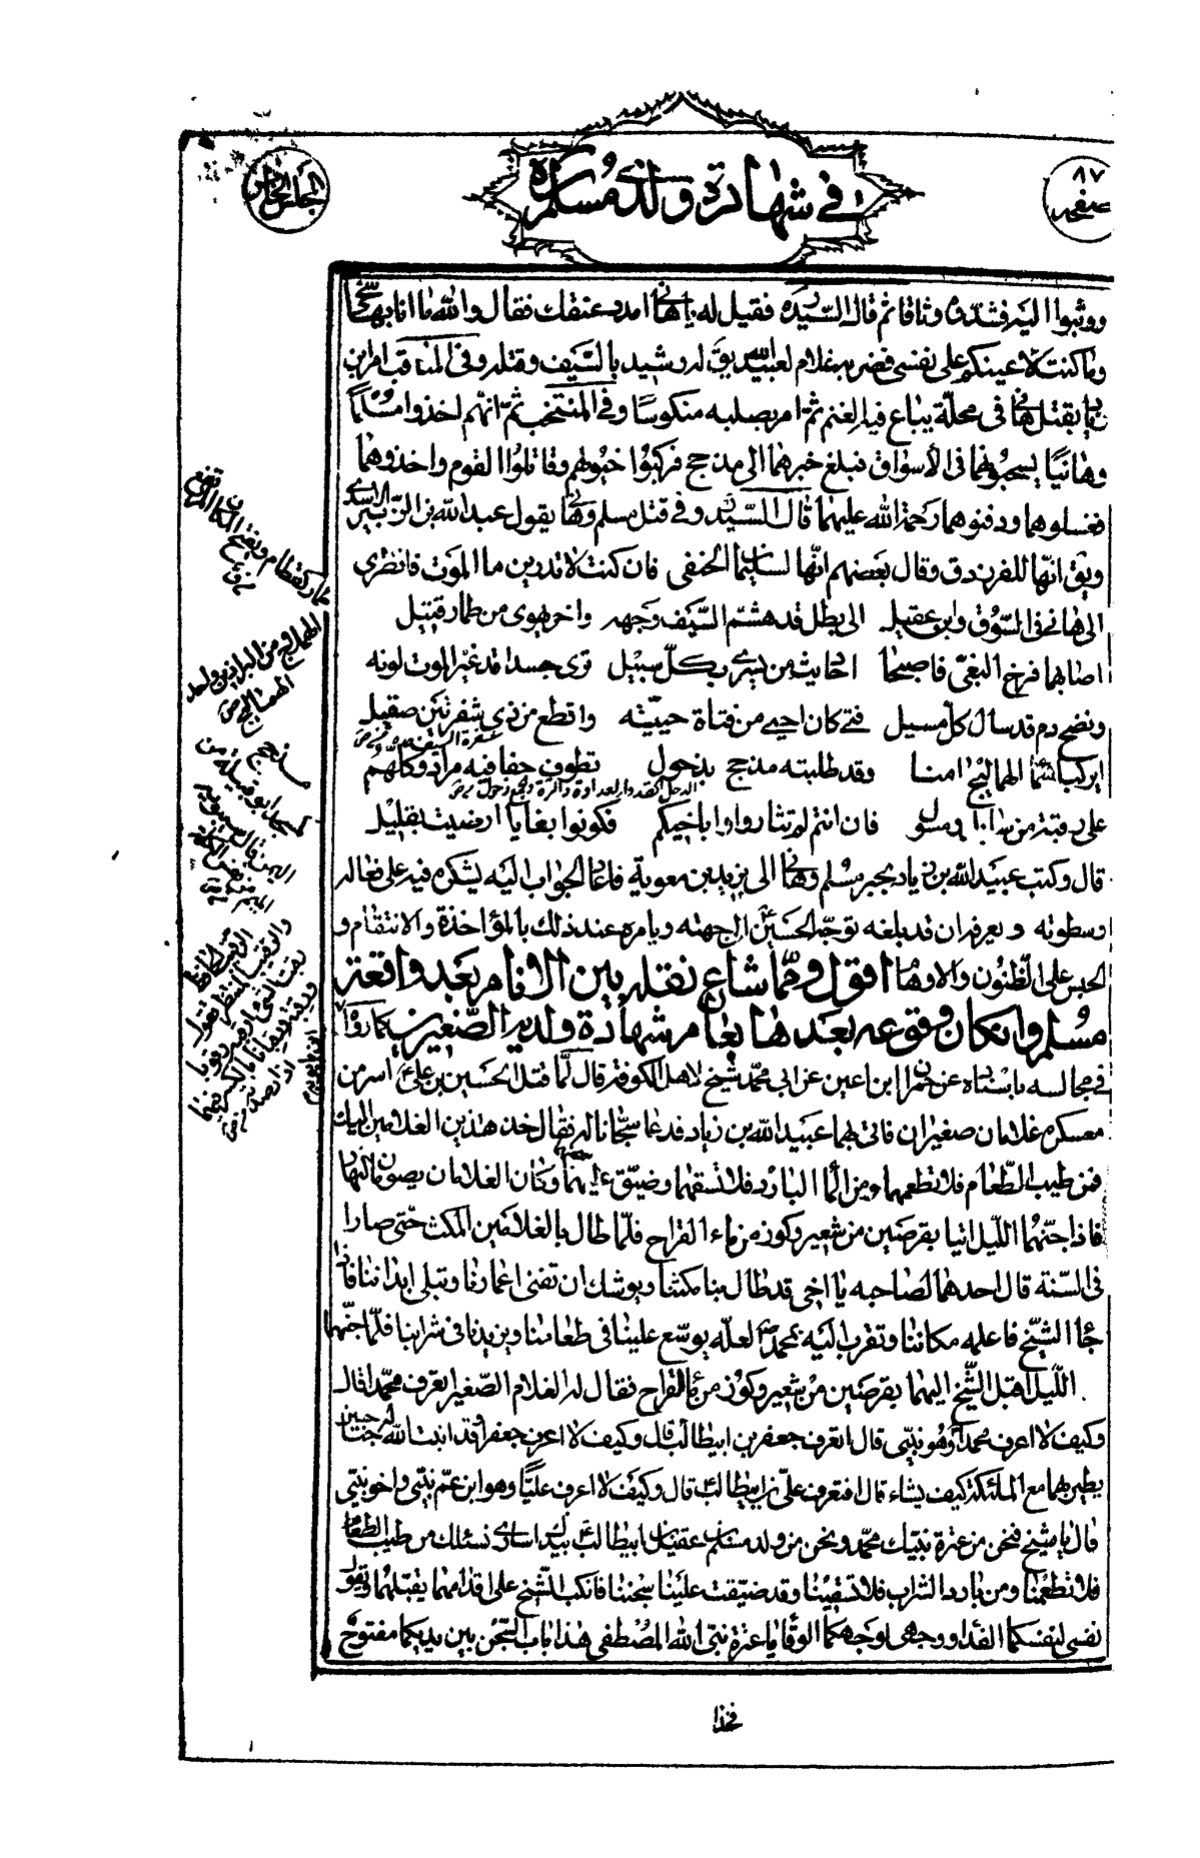 صفحه ٨٧
في شهادة ولدي مسلم ره
المجلس الخامس
ووثبوا اليه فشدّوه وثاقا ثم قال السيد ره فقيل له يا هاني امدد عنقك فقال والله ما انا بها سخي
وما كنت لاعينكم على نفسي فضربه غلام لعبيد الله يق له رشيد بالسيف وقتله وفي المناقب امر ابن
زياد بقتل هاني في محلّة يباع فيها الغنم ثمّ امر بصلبه منكوسا وفي المنتخب ثمّ انهم اخذوا مسلما
وهانيا يسحبونهما في الأسواق فبلغ خبرهما الى مذحج فركبوا خيولهم وقاتلوا القوم واخذوهما
فغسلوهما ودفنوهما رحمة الله عليهما قال السيد ره وفي قتل مسلم وهاني يقول عبد الله بن الزبير الاسدي
ويق انّها للفرزدق وقال بعضهم انّها لسليمان الحنفي فان كنت لا تدرين ما الموت فانظري
الى هاني في السّوق وابن عقيل الى بطل قد هشّم السّيف وجهه واخر يهوي من طمار قتيل
اصابهما فرخ البغيّ فاصبحا احاديث من يسري بكلّ سبيل ترى جسدا قد غيّر الموت لونه
ونضح دم قد سال كلّ مسيل فتى كان احيى من فتاة حييّة واقطع من ذي شفرتين صقيل
شفرة السيف حده ص
ايركب اسماء الهماليج امنا وقد طلبته مذحج بذحول تطوف حفافيه مراد وكلهم
الذحل الحقد والعداوة والجمع ذحول ص
على رقبة من سائل ومسول فان انتم لم تثاروا باخيكم فكونوا بغايا ارضيت بقليل
قال وكتب عبيد الله بن زياد بخبر مسلم وهاني الى يزيد بن معوية فاعاد الجواب اليه يشكره فيه على فعاله
وسطوته ويعرفه ان قد بلغه توجّه الحسين ع الى جهته ويامره عند ذلك بالمؤاخذة والانتقام و
الحبس على الظنون والاوهام اقول وممّا شاع نقله بين الانام بعد واقعة
مسلم وان كان وقوعه بعدها بعام شهادة ولديه الصّغيرين كما رواه
في مجالسه باسناده عن حمران ابن اعين عن ابي محمّد شيخ لاهل الكوفة قال لمّا قتل الحسين بن علي ع اسر من
معسكره غلامان صغيران فاتي بهما عبيد الله بن زياد فدعا سجّانا له فقال خذ هذين الغلامين اليك
فمن طيب الطّعام فلا تطعمهما ومن الماء البارد فلا تسقهما وضيّق عليهما وكان الغلامان يصومان النهار
فاذا جنّهما اللّيل اتيا بقرصين من شعير وكوز من ماء القراح فلمّا طال بالغلامين المكث حتّى صارا
في السّنة قال احدهما لصاحبه يا اخي قد طال بنا مكثنا ويوشك ان تفنى اعمارنا وتبلى ابداننا فاذا
جاء الشّيخ فاعلمه مكاننا وتقرب اليه بمحمد ص لعلّه يوسّع علينا في طعامنا ويزيدنا في شرابنا فلمّا جنّهما
اللّيل اقبل الشّيخ اليهما بقرصين من شعير وكوز من ماء القراح فقال له الغلام الصّغير اتعرف محمّدا قال
وكيف لا اعرف محمدا وهو نبيّي قال اتعرف جعفر بن ابيطالب قال وكيف لا اعرف جعفرا وقد انبت الله له جناحين
يطير بهما مع الملئكة كيف يشاء قال افتعرف عليّ بن ابيطالب قال وكيف لا اعرف عليّا وهو ابن عمّ نبيّي واخو نبيّي
قال يا شيخ فنحن من عترة نبيّك محمّد ونحن من ولد مسلم بن عقيل بن ابيطالب بيدك اسارى نسئلك من طيب الطعام
فلا تطعمنا ومن بارد الشراب فلا تسقينا وقد ضيّقت علينا سجننا فانكب الشّيخ على اقدامهما يقبّلهما ويقول
نفسي لنفسكما الفداء ووجهي لوجهكما الوقاء يا عترة نبيّ الله المصطفى هذا باب السّجن بين يديكما مفتوح
فخذا
طمار كقطام
الهملاج من البراذين واحد
الهماليج ص
مذحج
كمسجد ابو قبيلة من
اليمن